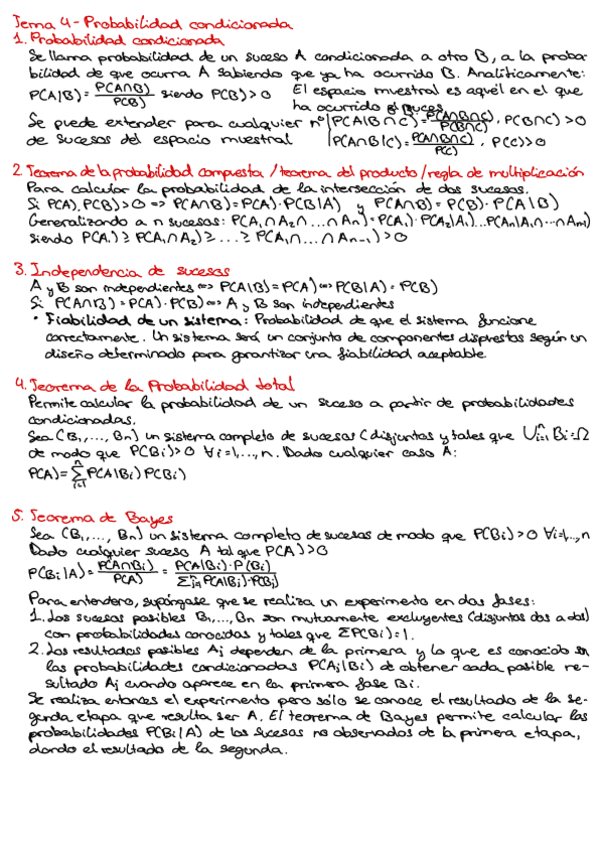 Tema 4 - Probabilidad condicionada
1. Probabilidad condicionada
Se llama probabilidad de un suceso A condicionada a otro B, a la proba-
bilidad de que ocurra A sabiendo que ya ha ocurrido B. Analíticamente:
P(A|B) = P(A∩B)/P(B) siendo P(B) > 0 El espacio muestral es aquél en el que
ha ocurrido el suceso
Se puede extender para cualquier nº P(A|B∩C) = P(A∩B∩C)/P(B∩C), P(B∩C) > 0
de sucesos del espacio muestral P(A∩B|C) = P(A∩B∩C)/P(C), P(C) > 0
2. Teorema de la probabilidad compuesta / teorema del producto / regla de multiplicación
Para calcular la probabilidad de la intersección de dos sucesos.
Si P(A), P(B) > 0 => P(A∩B) = P(A)·P(B|A) y P(A∩B) = P(B)·P(A|B)
Generalizando a n sucesos: P(A₁∩A₂∩...∩Aₙ) = P(A₁)·P(A₂|A₁)...P(Aₙ|A₁∩...∩Aₙ₋₁)
siendo P(A₁) ≥ P(A₁∩A₂) ≥ ... ≥ P(A₁∩...∩Aₙ₋₁) > 0
3. Independencia de sucesos
A y B son independientes <=> P(A|B) = P(A) <=> P(B|A) = P(B)
Si P(A∩B) = P(A)·P(B) <=> A y B son independientes
• Fiabilidad de un sistema: Probabilidad de que el sistema funcione
correctamente. Un sistema será un conjunto de componentes dispuestos según un
diseño determinado para garantizar una fiabilidad aceptable
4. Teorema de la Probabilidad total
Permite calcular la probabilidad de un suceso a partir de probabilidades
condicionadas.
Sea (B₁,..., Bₙ) un sistema completo de sucesos (disjuntos y tales que ⋃ⁿᵢ₌₁ Bᵢ = Ω
de modo que P(Bᵢ) > 0 ∀i=1,..., n. Dado cualquier caso A:
P(A) = ∑ⁿᵢ₌₁ P(A|Bᵢ) P(Bᵢ)
5. Teorema de Bayes
Sea (B₁,..., Bₙ) un sistema completo de sucesos de modo que P(Bᵢ) > 0 ∀i=1,...,n
Dado cualquier suceso A tal que P(A) > 0
P(Bᵢ|A) = P(A∩Bᵢ)/P(A) = P(A|Bᵢ)·P(Bᵢ)/∑ⁿⱼ₌₁ P(A|Bⱼ)·P(Bⱼ)
Para entenderlo, supóngase que se realiza un experimento en dos fases:
1. Los sucesos posibles B₁,..., Bₙ son mutuamente excluyentes (disjuntos dos a dos)
con probabilidades conocidas y tales que ∑P(Bᵢ) = 1.
2. Los resultados posibles Aⱼ dependen de la primera y lo que es conocido son
las probabilidades condicionadas P(Aⱼ|Bᵢ) de obtener cada posible re-
sultado Aⱼ cuando aparece en la primera fase Bᵢ.
Se realiza entonces el experimento pero sólo se conoce el resultado de la se-
gunda etapa que resulta ser A. El teorema de Bayes permite calcular las
probabilidades P(Bᵢ|A) de los sucesos no observados de la primera etapa,
dando el resultado de la segunda.